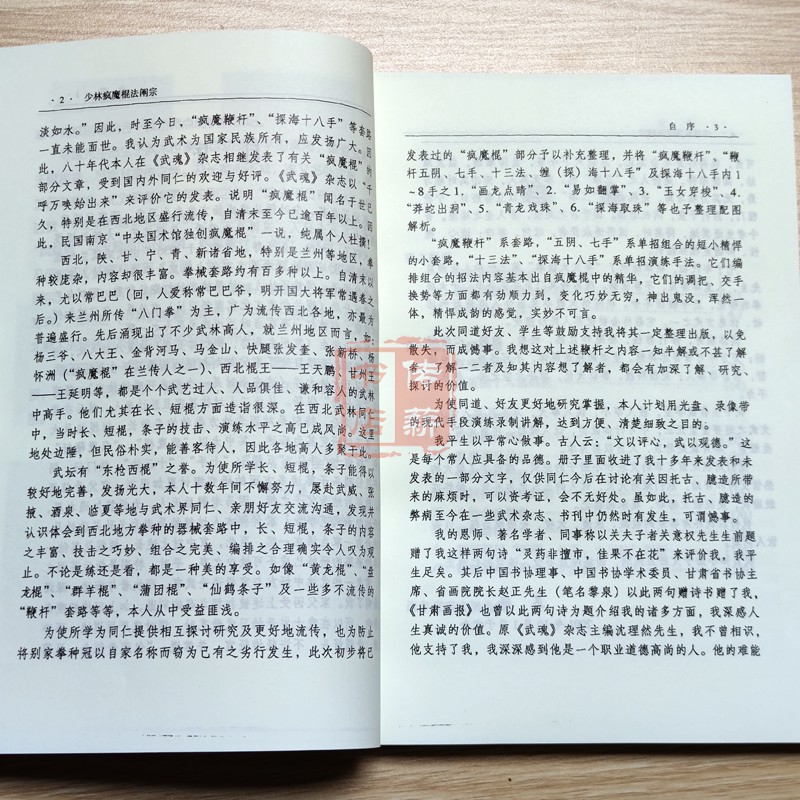 · 2 · 少林疯魔棍法阐宗
淡如水。”因此，时至今日，“疯魔鞭杆”、“探海十八手”等套路
一直未能面世。我认为武术为国家民族所有，应发扬广大。因
此，八十年代本人在《武魂》杂志相继发表了有关“疯魔棍”的
部分文章，受到国内外同仁的欢迎与好评。《武魂》杂志以“千
呼万唤始出来”来评价它的发表。说明“疯魔棍”闻名于世已
久，特别是在西北地区盛行流传，自清末至今已逾百年以上。因
此，民国南京“中央国术馆独创疯魔棍”一说，纯属个人杜撰！
西北，陕、甘、宁、青、新诸省地，特别是兰州等地区，拳
种较庞杂，内容却很丰富。拳械套路约有百多种以上。自清末以
来，尤以常巴巴（回，人爱称常巴巴爷，明开国大将军常遇春之
后。）来兰州所传“八门拳”为主，广为流传西北各地，亦最为
普遍盛行。先后涌现出了不少武林高人，就兰州地区而言，如：
杨三爷、八大王、金背河马、马金山、快腿张发奎、张新桥、杨
怀洲（“疯魔棍”在兰传人之一）、西北棍王——王天鹏、甘州王
——王延明等，都是个个武艺过人、人品俱佳、谦和容人的武林
中高手。他们尤其在长、短棍方面造诣很深。在西北武林同仁
中，当时长、短棍，条子的技击、演练水平之高已成风尚。这里
地处边陲，但民俗朴实，能善客待人，因此各地高人多聚于此。
武坛有“东枪西棍”之誉。为使所学长、短棍，条子能得以
较好地完善，发扬光大，本人十数年间不懈努力，屡赴武威、张
掖、酒泉、临夏等地与武术界同仁、亲朋好友交流沟通，发现并
认识体会到西北地方拳种的器械套路中，长、短棍，条子的内容
之丰富、技击之巧妙、组合之完美、编排之合理确实令人叹为观
止。不论是练还是看，都是一种美的享受。如像“黄龙棍”、“盘
龙棍”、“群羊棍”、“蒲团棍”、“仙鹤条子”及一些多不流传的
“鞭杆”套路等等，本人从中受益匪浅。
为使所学为同仁提供相互探讨研究及更好地流传，也为防止
将别家拳种冠以自家名称而窃为己有之劣行发生，此次初步将已
自 序 · 3 ·
发表过的“疯魔棍”部分予以补充整理，并将“疯魔鞭杆”、“鞭
杆五阴、七手、十三法、缠（探）海十八手”及探海十八手内1
～8手之1.“画龙点睛”、2.“易如翻掌”、3.“玉女穿梭”、4.
“莽蛇出洞”、5.“青龙戏珠”、6.“探海取珠”等也予整理配图
解析。
“疯魔鞭杆”系套路，“五阴、七手”系单招组合的短小精悍
的小套路，“十三法”、“探海十八手”系单招演练手法。它们编
排组合的招法内容基本出自疯魔棍中的精华，它们的调把、交手
换势等方面都有动顺力到，变化巧妙无穷，神出鬼没，浑然一
体，精悍成韵的感觉，实妙不可言。
此次同道好友、学生等鼓励支持我将其一定整理出版，以免
散失，而成憾事。我想这对上述鞭杆之内容一知半解或不甚了解
者、了解一二者及知其内容想了解者，都会有加深了解、研究、
探讨的价值。
为使同道、好友更好地研究掌握，本人计划用光盘、录像带
的现代手段演练录制讲解，达到方便、清楚细致之目的。
我平生以平常心做事。古人云：“文以评心，武以观德。”这
是每个常人应具备的品德。册子里面收进了我十多年来发表和未
发表的一部分文字，仅供同仁今后在讨论有关因托古、臆造所带
来的麻烦时，可以资考证，会不无好处。虽如此，托古、臆造的
弊病至今在一些武术杂志、书刊中仍然时有发生，可谓憾事。
我的恩师、著名学者、同事称以关夫子者关意权先生生前题
赠了我这样两句诗“灵药非擅市，佳果不在花”来评价我，我平
生足矣。其后中国书协理事、中国书协学术委员、甘肃省书协主
席、省画院院长赵正先生（笔名黎泉）以此两句赠诗书赠了我，
《甘肃画报》也曾以此两句诗为题介绍我的诸多方面，我深感人
生真诚的价值。原《武魂》杂志主编沈理然先生，我不曾相识，
他支持了我，我深深感到他是一个职业道德高尚的人。他的难能